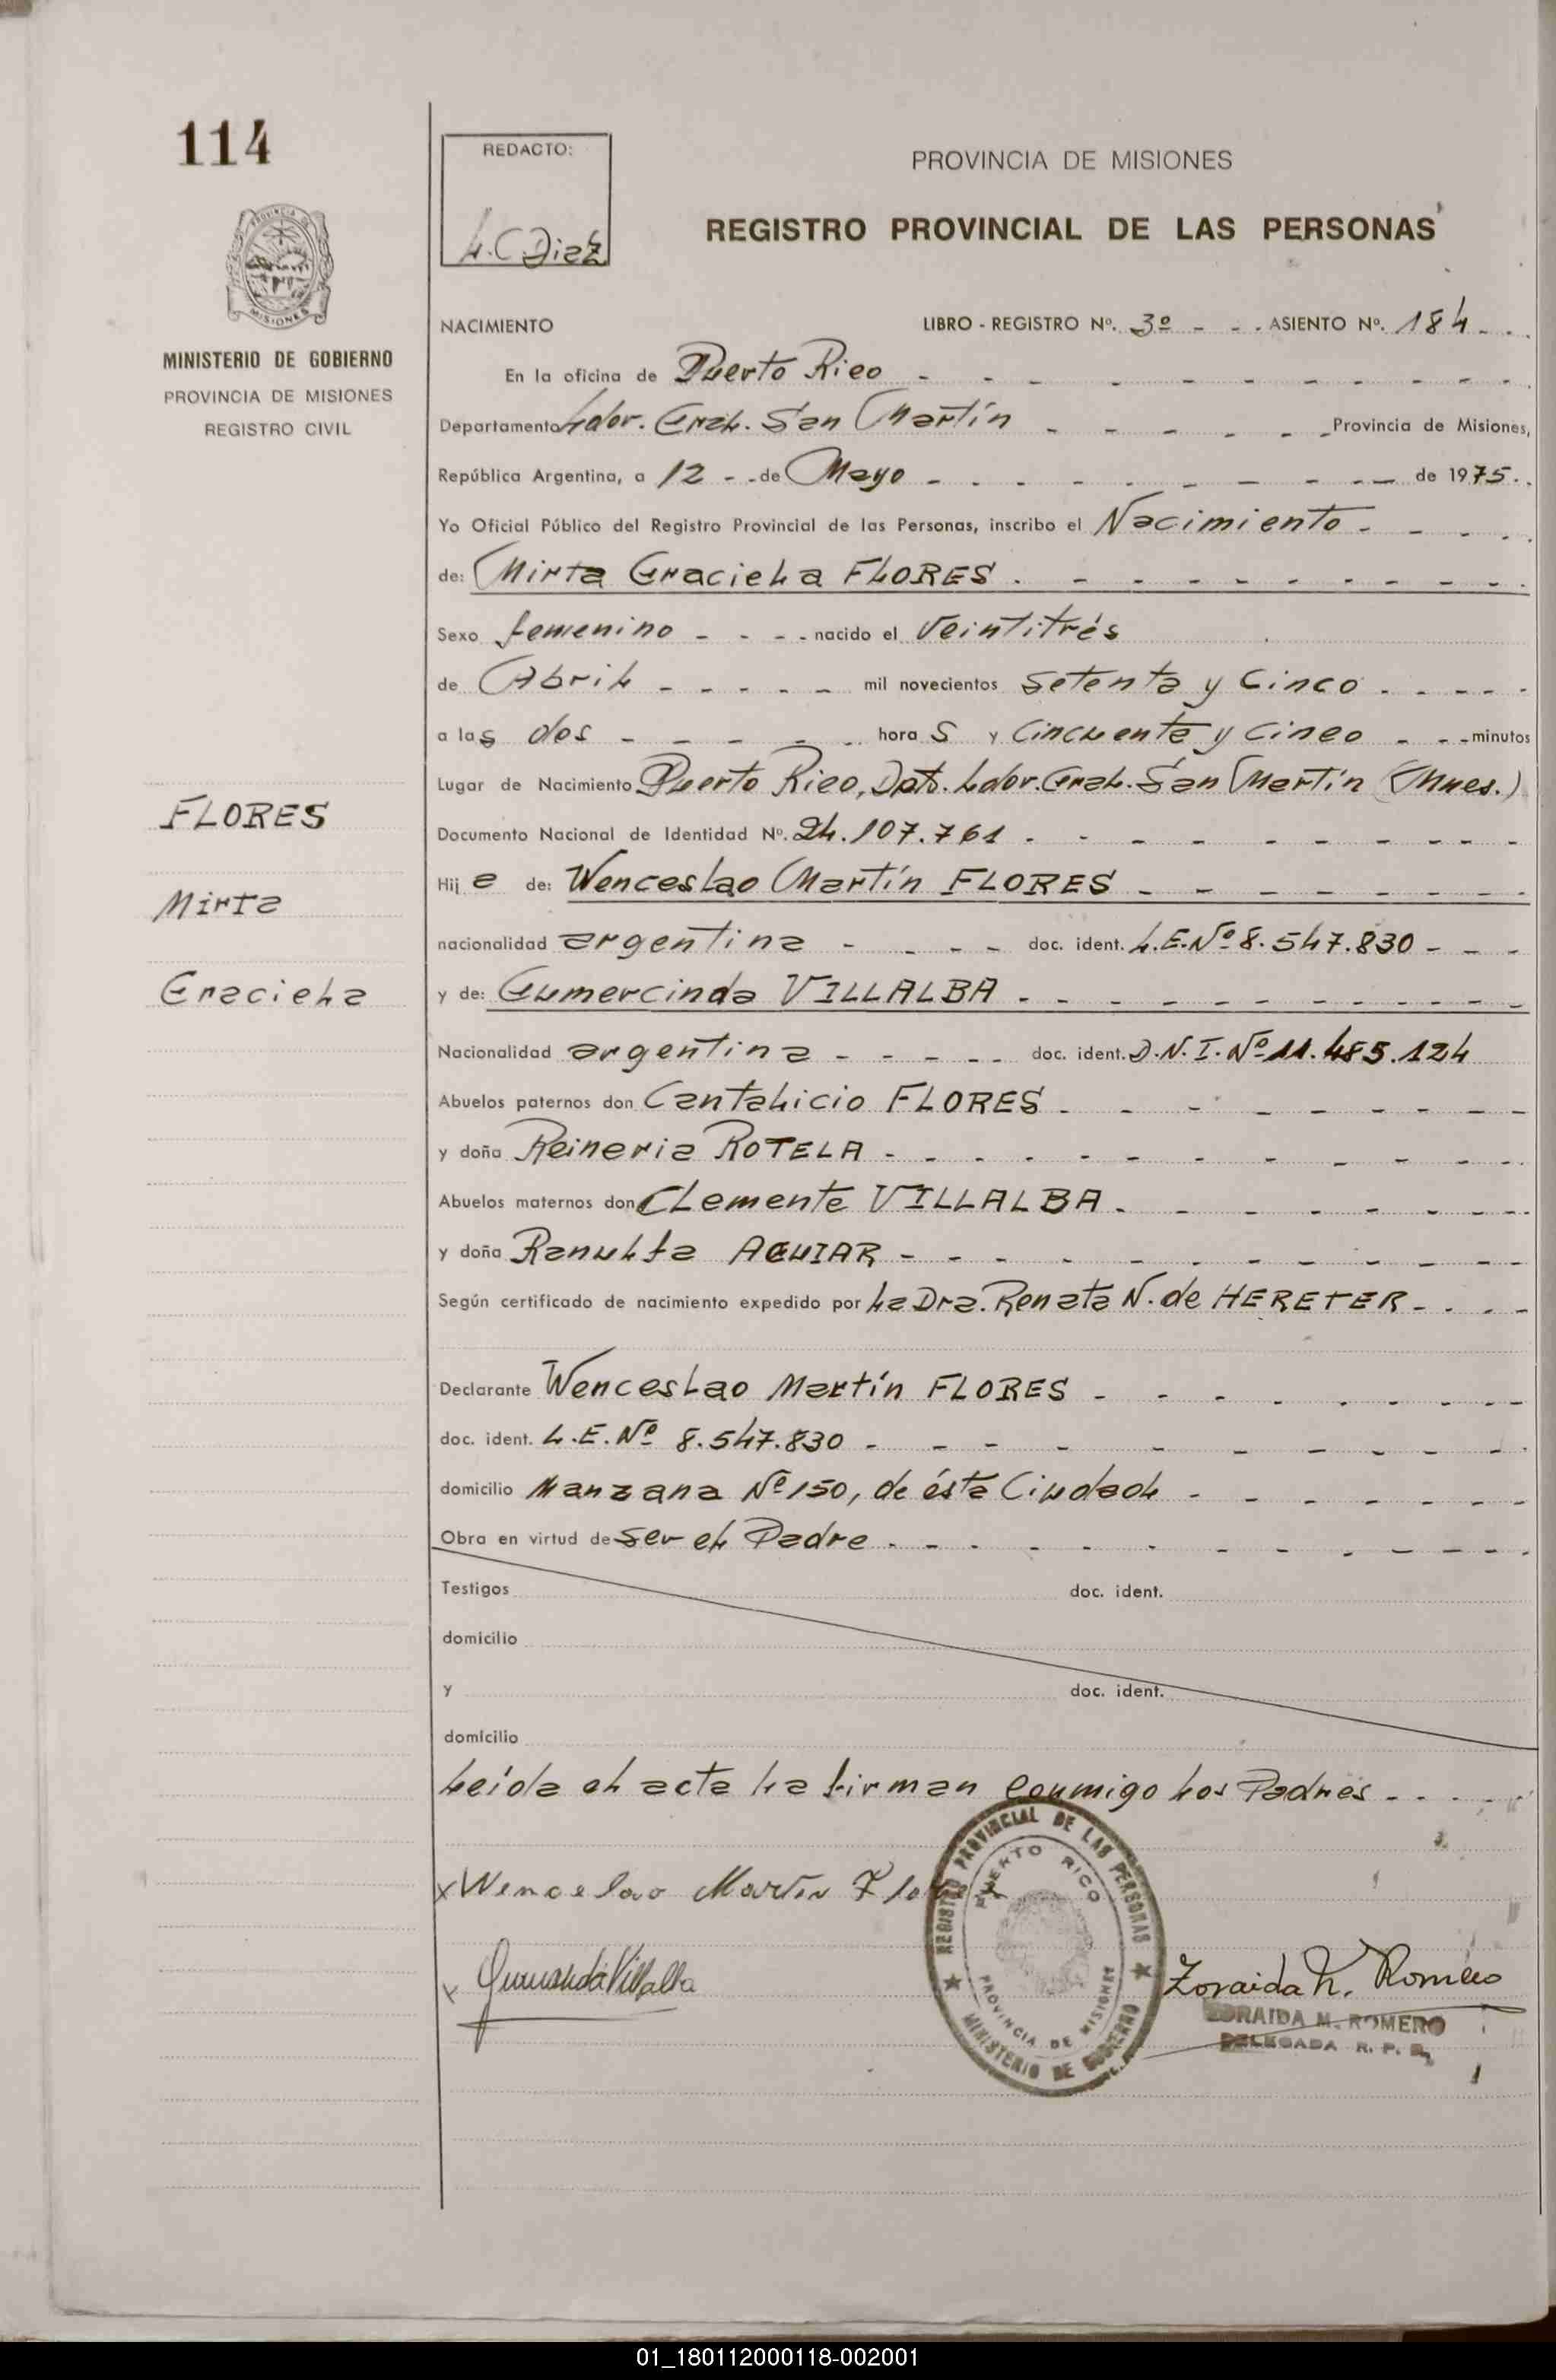 114
REDACTO:
L.C Diaz
PROVINCIA DE MISIONES
REGISTRO PROVINCIAL DE LAS PERSONAS
PROVINCIA DE
MISIONES
MINISTERIO DE GOBIERNO
PROVINCIA DE MISIONES
REGISTRO CIVIL
NACIMIENTO LIBRO - REGISTRO Nº. 3º - - . ASIENTO Nº. 184 - .
En la oficina de Puerto Rico
Departamento Ldor. Gral. San Martín Provincia de Misiones,
República Argentina, a 12 - - de Mayo de 1975.
Yo Oficial Público del Registro Provincial de las Personas, inscribo el Nacimiento
de: Mirta Graciela FLORES
Sexo femenino nacido el Veintitrés
de Abril mil novecientos Setenta y Cinco
a las dos hora s y Cincuenta y Cinco minutos
Lugar de Nacimiento Puerto Rico, Dpto. Ldor. Gral. San Martín (Mnes.)
Documento Nacional de Identidad Nº. 24.107.761
Hij a de: Wenceslao Martín FLORES
nacionalidad argentina doc. ident. L.E.Nº 8.547.830
y de: Gumercinda VILLALBA
Nacionalidad argentina doc. ident. D.N.I. Nº 11.485.124
Abuelos paternos don Cantalicio FLORES
y doña Reineria ROTELA
Abuelos maternos don Clemente VILLALBA
y doña Ranulfa AGUIAR
Según certificado de nacimiento expedido por la Dra. Renata N. de HERETER
Declarante Wenceslao Martín FLORES
doc. ident. L.E. Nº 8.547.830
domicilio Manzana Nº 150, de ésta Ciudad
Obra en virtud de ser el Padre
Testigos doc. ident.
domicilio
y doc. ident.
domicilio
Leída el acta la firman conmigo los Padres
FLORES
Mirta
Graciela
x Wencelao Martin Flores
x Gumersinda Villalba
REGISTRO PROVINCIAL DE LAS PERSONAS
PUERTO RICO
PROVINCIA DE MISIONES
MINISTERIO DE GOBIERNO
Zoraida N. Romero
ZORAIDA N. ROMERO
DELEGADA R. P. P.
01_180112000118-002001